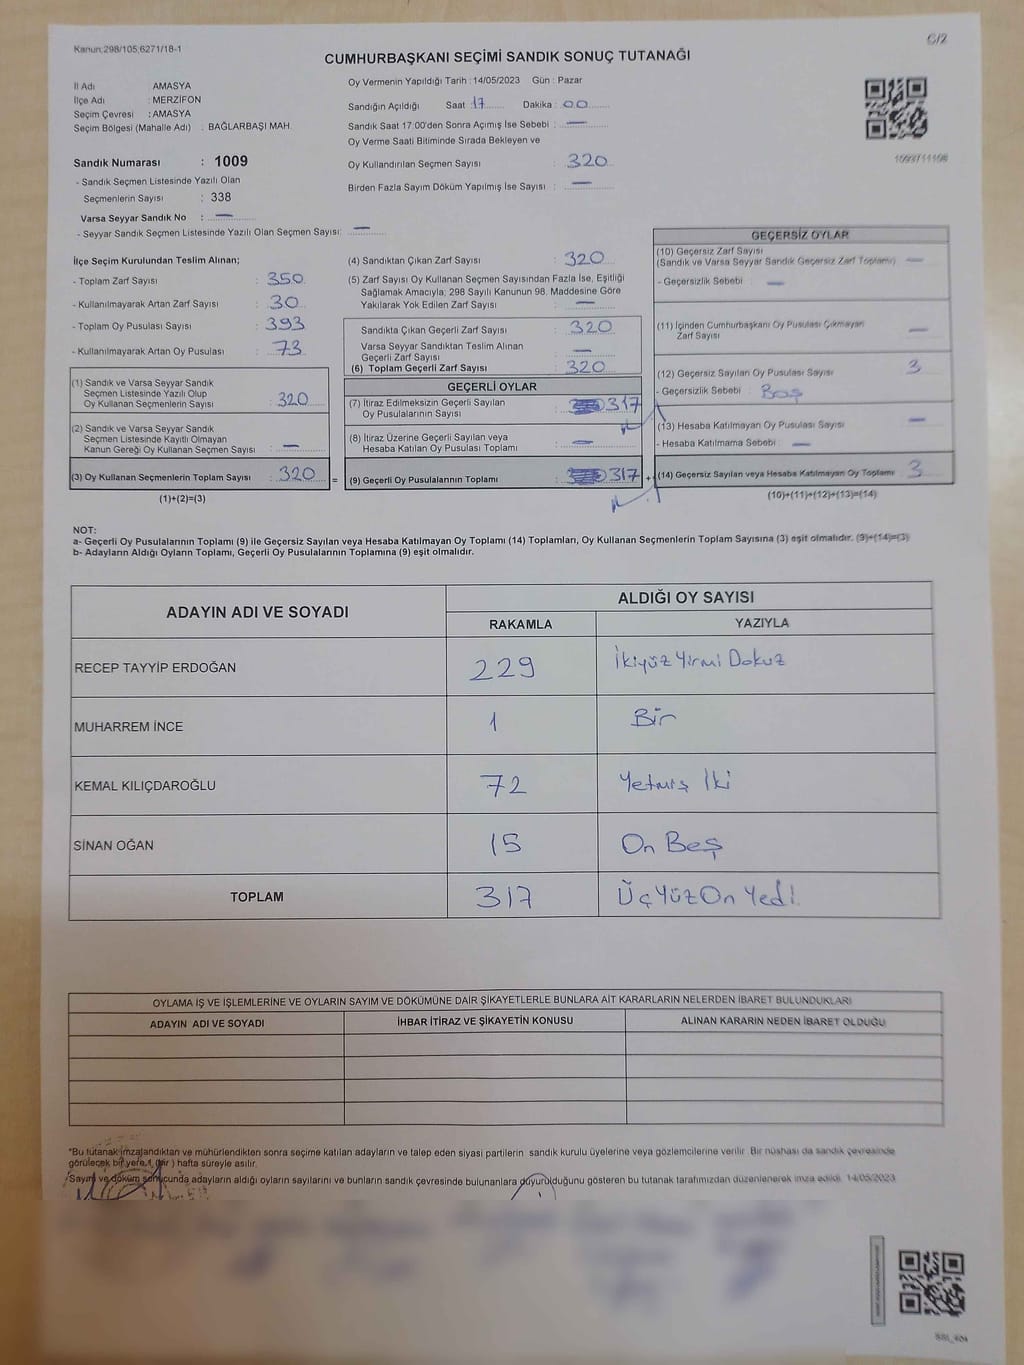 Kanun;298/105;6271/18-1
C/2
CUMHURBAŞKANI SEÇİMİ SANDIK SONUÇ TUTANAĞI
İl Adı AMASYA
İlçe Adı : MERZİFON
Seçim Çevresi : AMASYA
Seçim Bölgesi (Mahalle Adı) : BAĞLARBAŞI MAH.
Sandık Numarası : 1009
- Sandık Seçmen Listesinde Yazılı Olan
Seçmenlerin Sayısı : 338
Varsa Seyyar Sandık No : —
- Seyyar Sandık Seçmen Listesinde Yazılı Olan Seçmen Sayısı: —
Oy Vermenin Yapıldığı Tarih : 14/05/2023 Gün : Pazar
Sandığın Açıldığı Saat 17 Dakika : 00
Sandık Saat 17:00'den Sonra Açımış İse Sebebi : —
Oy Verme Saati Bitiminde Sırada Bekleyen ve
Oy Kullandırılan Seçmen Sayısı : 320
Birden Fazla Sayım Döküm Yapılmış İse Sayısı : —
İlçe Seçim Kurulundan Teslim Alınan;
- Toplam Zarf Sayısı : 350
- Kullanılmayarak Artan Zarf Sayısı : 30
- Toplam Oy Pusulası Sayısı : 393
- Kullanılmayarak Artan Oy Pusulası : 73
(1) Sandık ve Varsa Seyyar Sandık
Seçmen Listesinde Yazılı Olup
Oy Kullanan Seçmenlerin Sayısı : 320
(2) Sandık ve Varsa Seyyar Sandık
Seçmen Listesinde Kayıtlı Olmayan
Kanun Gereği Oy Kullanan Seçmen Sayısı : —
(3) Oy Kullanan Seçmenlerin Toplam Sayısı : 320 =
(1)+(2)=(3)
(4) Sandıktan Çıkan Zarf Sayısı : 320
(5) Zarf Sayısı Oy Kullanan Seçmen Sayısından Fazla İse, Eşitliği
Sağlamak Amacıyla; 298 Sayılı Kanunun 98. Maddesine Göre
Yakılarak Yok Edilen Zarf Sayısı : —
Sandıkta Çıkan Geçerli Zarf Sayısı : 320
Varsa Seyyar Sandıktan Teslim Alınan
Geçerli Zarf Sayısı : —
(6) Toplam Geçerli Zarf Sayısı : 320
GEÇERLİ OYLAR
(7) İtiraz Edilmeksizin Geçerli Sayılan
Oy Pusulalarının Sayısı : 317
(8) İtiraz Üzerine Geçerli Sayılan veya
Hesaba Katılan Oy Pusulası Toplamı : —
(9) Geçerli Oy Pusulalarının Toplamı : 317 +
GEÇERSİZ OYLAR
(10) Geçersiz Zarf Sayısı
(Sandık ve Varsa Seyyar Sandık Geçersiz Zarf Toplamı) —
- Geçersizlik Sebebi : —
(11) İçinden Cumhurbaşkanı Oy Pusulası Çıkmayan
Zarf Sayısı —
(12) Geçersiz Sayılan Oy Pusulası Sayısı 3
- Geçersizlik Sebebi : Boş
(13) Hesaba Katılmayan Oy Pusulası Sayısı —
- Hesaba Katılmama Sebebi : —
(14) Geçersiz Sayılan veya Hesaba Katılmayan Oy Toplamı 3
(10)+(11)+(12)+(13)=(14)
NOT:
a- Geçerli Oy Pusulalarının Toplamı (9) ile Geçersiz Sayılan veya Hesaba Katılmayan Oy Toplamı (14) Toplamları, Oy Kullanan Seçmenlerin Toplam Sayısına (3) eşit olmalıdır. (9)+(14)=(3)
b- Adayların Aldığı Oyların Toplamı, Geçerli Oy Pusulalarının Toplamına (9) eşit olmalıdır.
ADAYIN ADI VE SOYADI
ALDIĞI OY SAYISI
RAKAMLA YAZIYLA
RECEP TAYYİP ERDOĞAN 229 İkiyüz Yirmi Dokuz
MUHARREM İNCE 1 Bir
KEMAL KILIÇDAROĞLU 72 Yetmiş İki
SİNAN OĞAN 15 On Beş
TOPLAM 317 Üç Yüz On Yedi
OYLAMA İŞ VE İŞLEMLERİNE VE OYLARIN SAYIM VE DÖKÜMÜNE DAİR ŞİKAYETLERLE BUNLARA AİT KARARLARIN NELERDEN İBARET BULUNDUKLARI
ADAYIN ADI VE SOYADI İHBAR İTİRAZ VE ŞİKAYETİN KONUSU ALINAN KARARIN NEDEN İBARET OLDUĞU
*Bu tutanak imzalandıktan ve mühürlendikten sonra seçime katılan adayların ve talep eden siyasi partilerin sandık kurulu üyelerine veya gözlemcilerine verilir. Bir nüshası da sandık çevresinde
görülecek bir yere 1 (bir) hafta süreyle asılır.
Sayım ve döküm sonucunda adayların aldığı oyların sayılarını ve bunların sandık çevresinde bulunanlara duyurulduğunu gösteren bu tutanak tarafımızdan düzenlenerek imza edildi. 14/05/2023